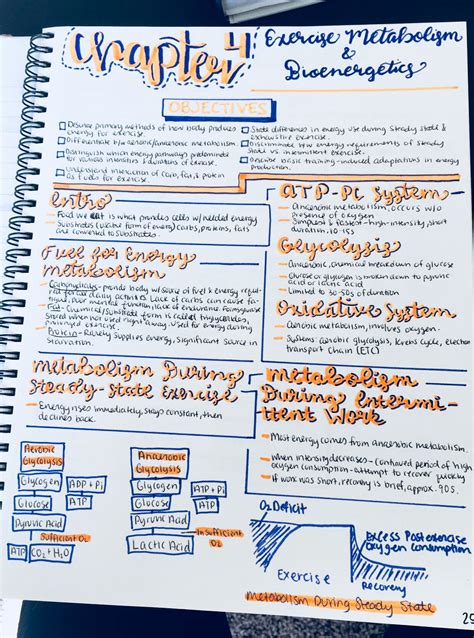 Chapter 4
Exercise Metabolism
&
Bioenergetics
OBJECTIVES
primary methods of how body produces
energy for exercise.
Differentiate b/w aerobic/anaerobic metabolism
Distinguish which energy pathways predominate
for various intensities & durations of exercise.
Understand interaction of carb, fat, & protein
as fuels for exercise.
State differences in energy use during Steady State &
exhaustive exercise.
Discriminate b/w energy requirements of Steady
State vs. intermittent exercise.
Describe basic training-induced adaptations in energy
production.
Intro
- Food we eat is what provides cells w/ needed energy
Substrates (usable form of energy) carbs, proteins, fats
are converted to substrates.
Fuel for Energy
metabolism
- Carbohydrates - provide body w/ source of fuel & energy
for daily activities. Lack of carbs can cause
poor mental function, lack of endurance.
Fat - Chemical/Substrate form is called triglycerides,
Stored when not used right away. Used for energy during
prolonged exercise.
- Protein - Rarely supplies energy, significant source in
Starvation.
metabolism During
Steady-state Exercise
- Energy rises immediately, stays constant, then
declines back.
ATP-PC System
- Anaerobic metabolism, occurs w/o
presence of oxygen
- Simplest & fastest - high-intensity, short
duration, 10-15s
Glycolysis
- Anaerobic, chemical breakdown of glucose
- Glucose or glycogen is broken down to pyruvic
acid or lactic acid
- Limited to 30-50s of duration
Oxidative System
- Aerobic metabolism, involves oxygen.
- Systems: aerobic glycolysis, Krebs cycle, electron
transport chain (ETC)
Metabolism
During Intermi-
ttent Work
- Most energy comes from anaerobic metabolism.
- When intensity decreases - continued period of high
oxygen consumption - attempt to recover quickly
- If work was short, recovery is brief, approx. 90s.
Aerobic
Glycolysis
Glycogen
ADP + Pi
Glucose
ATP
Pyruvic Acid
Sufficient O2
ATP
CO2 + H2O
Anaerobic
Glycolysis
Glycogen
ATP + Pi
Glucose
ATP
Pyruvic Acid
Insufficient O2
Lactic Acid
O2 Deficit
Excess Postexercise
Oxygen Consumption
Exercise
Recovery
Metabolism During Steady State